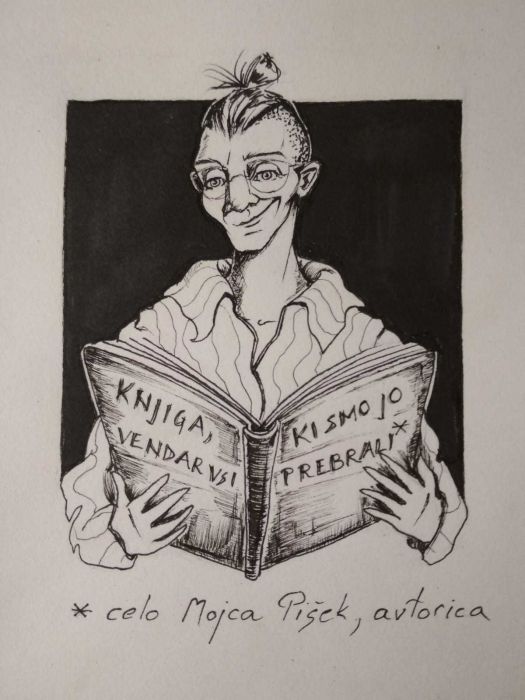 KNJIGA, KI SMO JO
VENDAR VSI PREBRALI*
* celo Mojca Pišek, avtorica